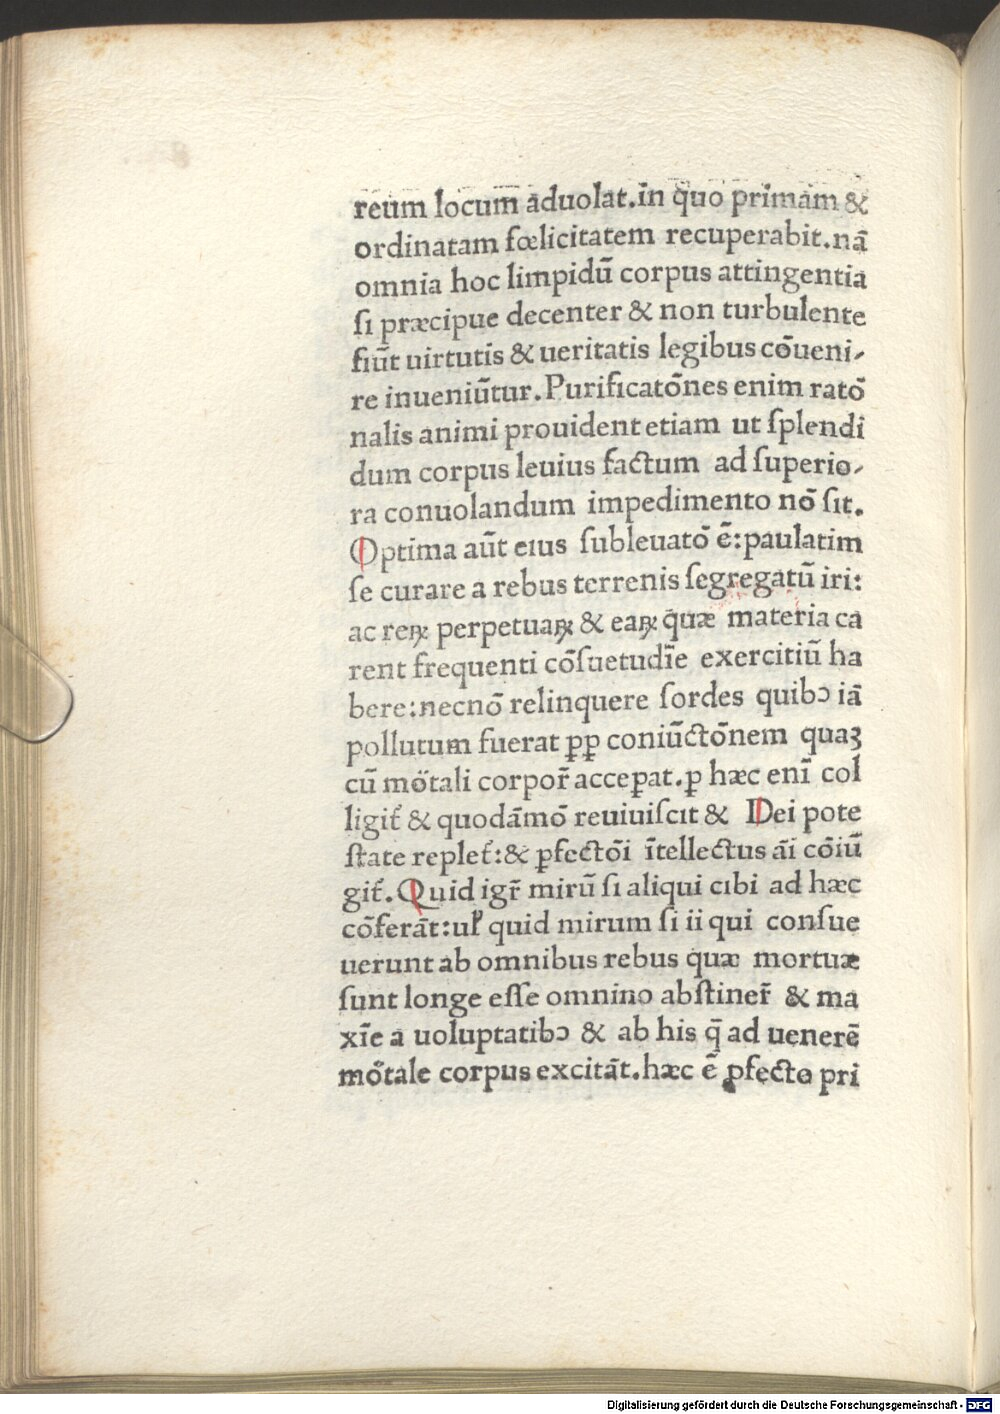 reum locum aduolat.in quo primam &
ordinatam fœlicitatem recuperabit.nā
omnia hoc limpidū corpus attingentia
ſi præcipue decenter & non turbulente
fiūt uirtutis & ueritatis legibus cōueni-
re inueniūtur.Purificatōnes enim ratō
nalis animi prouident etiam ut ſplendi
dum corpus leuius factum ad ſuperio-
ra conuolandum impedimento nō ſit.
Optima aūt eius ſubleuatō ē:paulatim
ſe curare a rebus terrenis ſegregatū iri:
ac reꝝ perpetuaꝝ & eaꝝ quæ materia ca
rent frequenti cōſuetudīe exercitiū ha
bere:necnō relinquere ſordes quibꝰ iā
pollutum fuerat ꝑꝑ coniūctōnem quaꝫ
cū mōtali corpor̄ acceꝑat.ꝑ hæc enī col
ligit̄ & quodāmō reuiuiſcit & Dei pote
ſtate replet̄:& ꝑfectōi ītellectus āi cōiū
git̄.Quid igr̄ mirū ſi aliqui cibi ad hæc
cōferāt:ul̄ quid mirum ſi ii qui conſue
uerunt ab omnibus rebus quæ mortuæ
ſunt longe eſſe omnino abſtiner̄ & ma
xīe a uoluptatibꝰ & ab his q̄ ad uenerē
mōtale corpus excitāt.hæc ē ꝓfecto pri
Digitalisierung gefördert durch die Deutsche Forschungsgemeinschaft - DFG